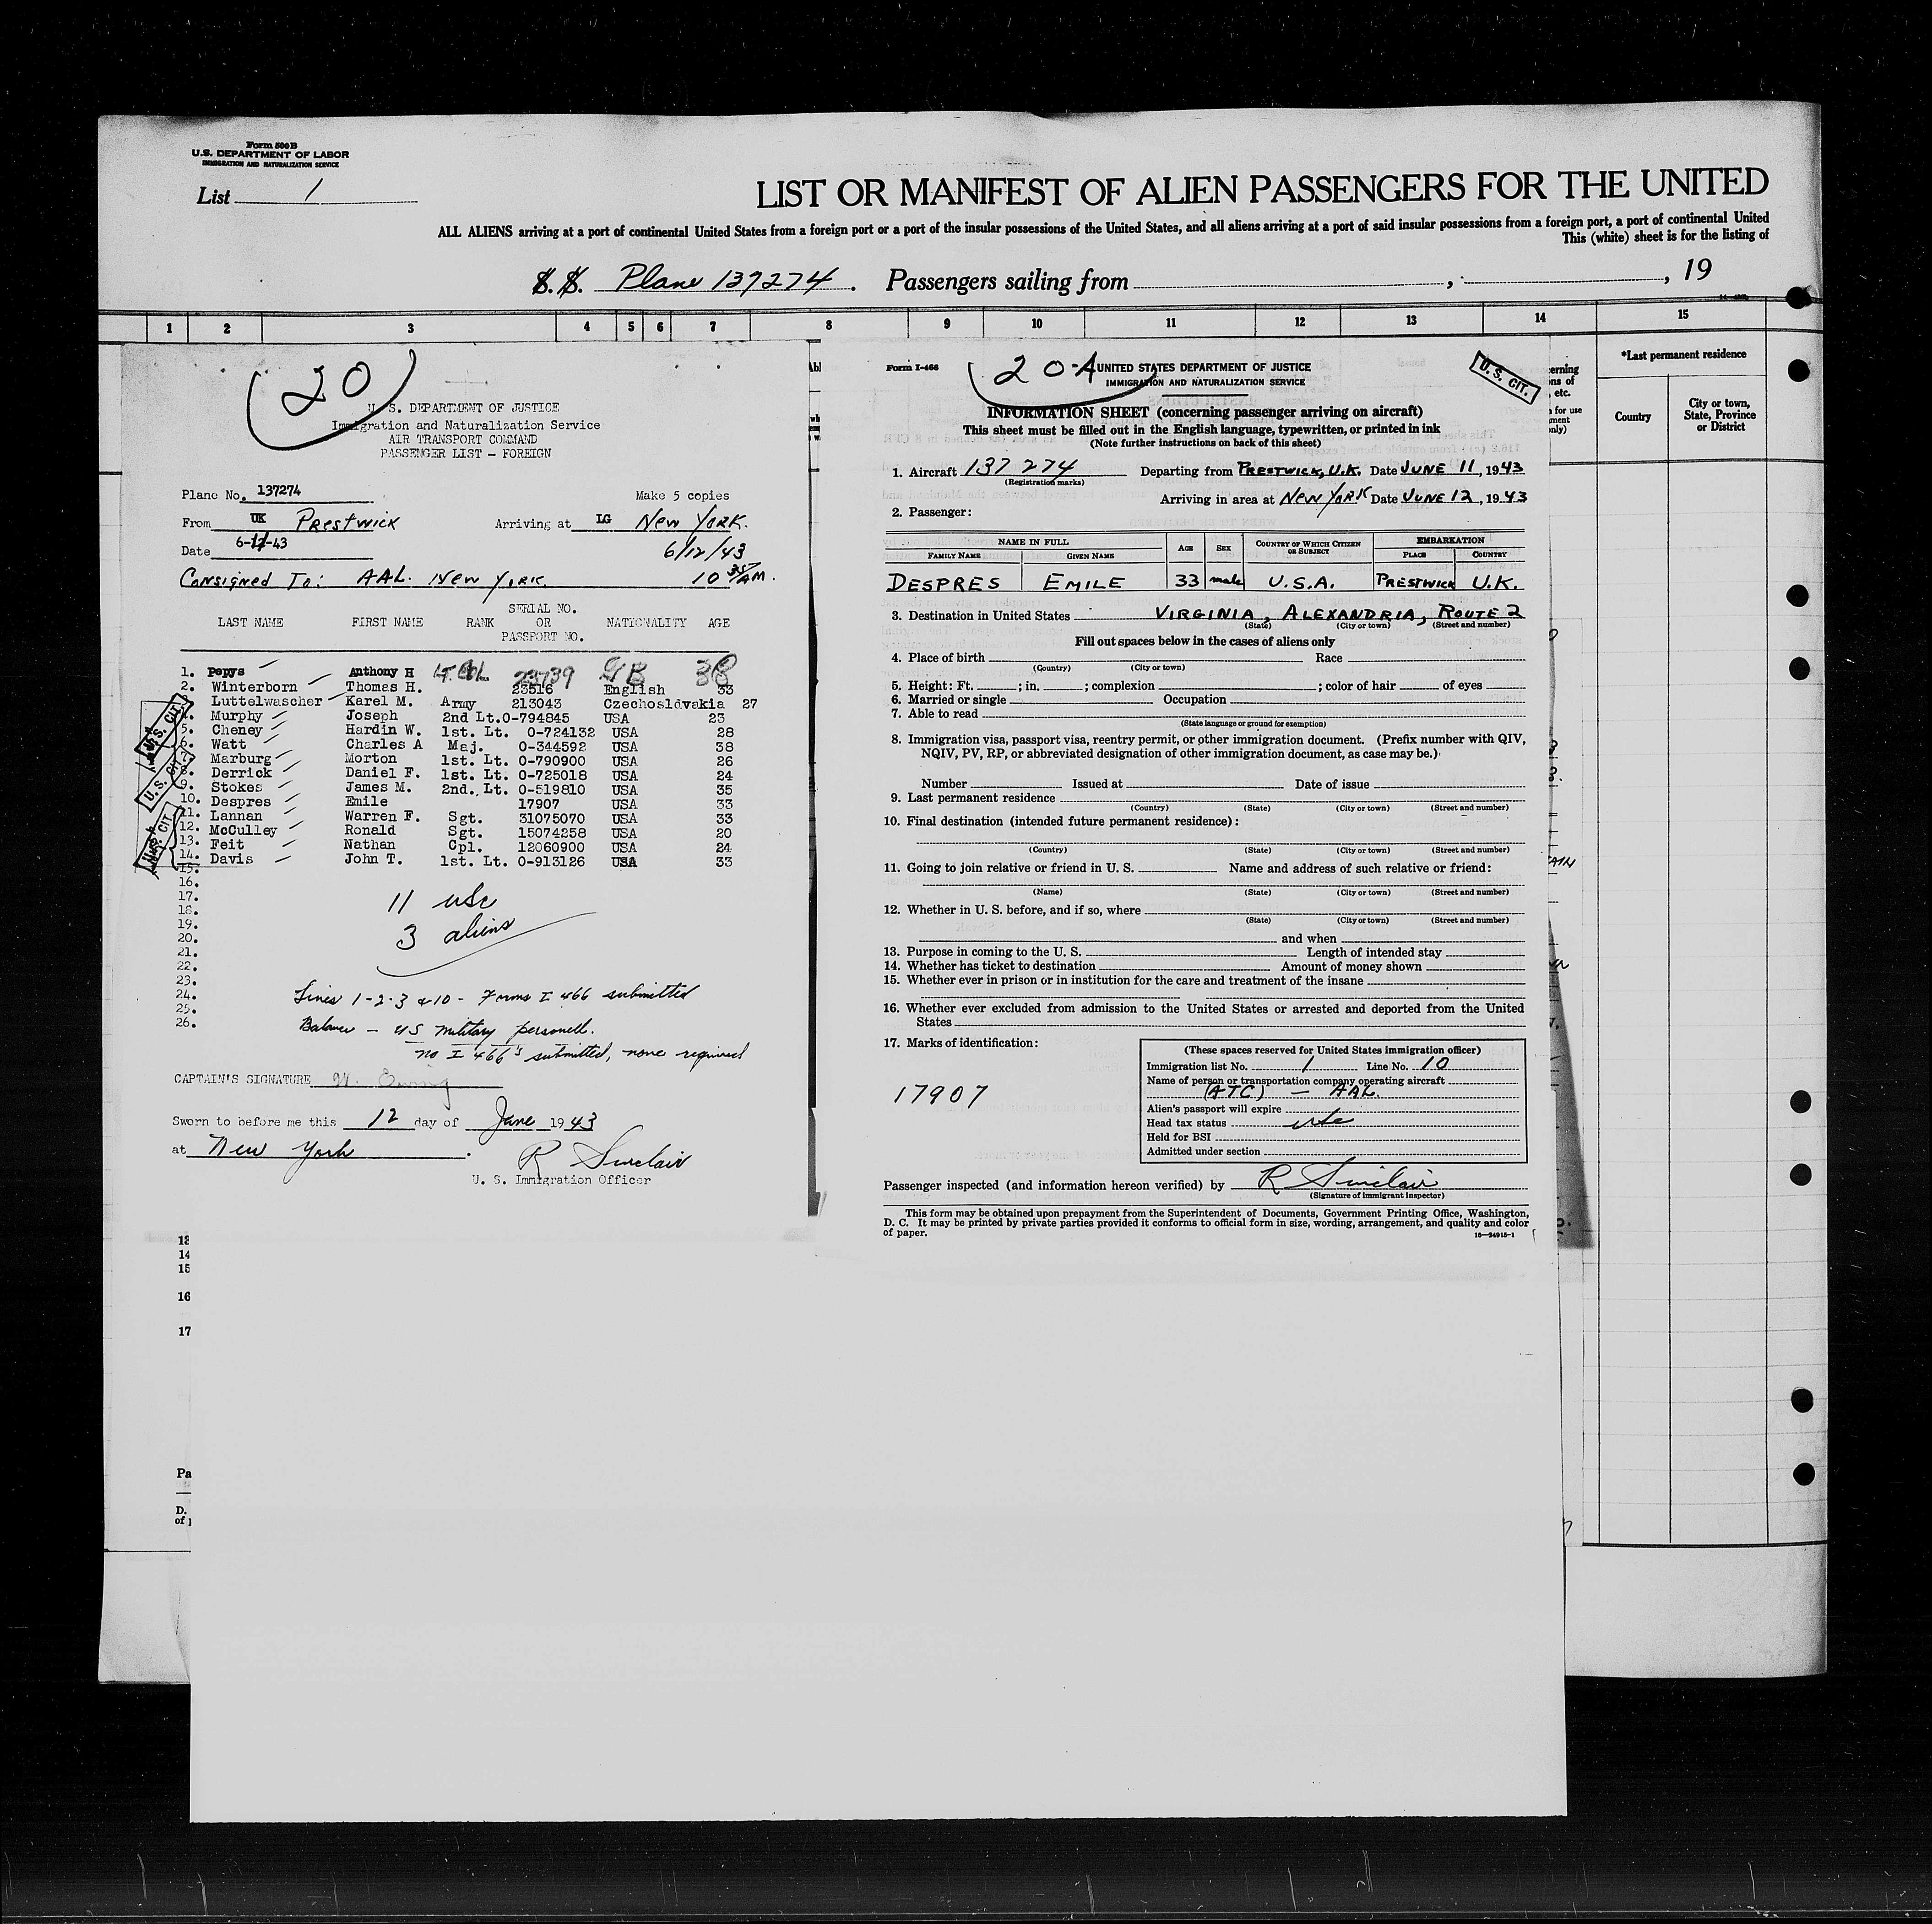 Form 500B
U.S. DEPARTMENT OF LABOR
IMMIGRATION AND NATURALIZATION SERVICE
List 1
LIST OR MANIFEST OF ALIEN PASSENGERS FOR THE UNITED
ALL ALIENS arriving at a port of continental United States from a foreign port or a port of the insular possessions of the United States, and all aliens arriving at a port of said insular possessions from a foreign port, a port of continental United
This (white) sheet is for the listing of
S.S. Plane 137274. Passengers sailing from , , 19
1 2 3 4 5 6 7 8 9 10 11 12 13 14 15
*Last permanent residence
Country
City or town, State, Province or District
20
U. S. DEPARTMENT OF JUSTICE
Immigration and Naturalization Service
AIR TRANSPORT COMMAND
PASSENGER LIST - FOREIGN
Plane No. 137274 Make 5 copies
From UK Prestwick Arriving at LG New York.
Date 6-11-43 6/12/43
Consigned To: AAL. New York. 10 35 AM.
LAST NAME FIRST NAME RANK SERIAL NO. OR PASSPORT NO. NATIONALITY AGE
1. Pepys Anthony H Lt. Col. 23739 GB 38
2. Winterborn Thomas H. 23516 English 33
3. Luttelwascher Karel M. Army 213043 Czechosldvakia 27
4. Murphy Joseph 2nd Lt. 0-794845 USA 23
5. Cheney Hardin W. 1st. Lt. 0-724132 USA 28
6. Watt Charles A Maj. 0-344592 USA 38
7. Marburg Morton 1st. Lt. 0-790900 USA 26
8. Derrick Daniel F. 1st. Lt. 0-725018 USA 24
9. Stokes James M. 2nd. Lt. 0-519810 USA 35
10. Despres Emile 17907 USA 33
11. Lannan Warren F. Sgt. 31075070 USA 33
12. McCulley Ronald Sgt. 15074258 USA 20
13. Feit Nathan Cpl. 12060900 USA 24
14. Davis John T. 1st. Lt. 0-913126 USA 33
15.
16.
17.
18.
19.
20.
21.
22.
23.
24.
25.
26.
U. S. CIT.
U. S. CIT.
U. S. CIT.
11 usc
3 aliens
Lines 1-2-3 & 10 - Forms I 466 submitted
Balance - US military personell.
no I 466's submitted, none required
CAPTAIN'S SIGNATURE
Sworn to before me this 12 day of June 1943
at New York.
R Sinclair
U. S. Immigration Officer
Form I-466
20-A
U. S. CIT.
UNITED STATES DEPARTMENT OF JUSTICE
IMMIGRATION AND NATURALIZATION SERVICE
INFORMATION SHEET (concerning passenger arriving on aircraft)
This sheet must be filled out in the English language, typewritten, or printed in ink
(Note further instructions on back of this sheet)
1. Aircraft 137274 Departing from Prestwick, U.K. Date June 11, 1943
(Registration marks)
Arriving in area at New York Date June 12, 1943
2. Passenger:
NAME IN FULL AGE SEX COUNTRY OF WHICH CITIZEN OR SUBJECT EMBARKATION
FAMILY NAME GIVEN NAME PLACE COUNTRY
DESPRES EMILE 33 male U.S.A. PRESTWICK U.K.
3. Destination in United States VIRGINIA, ALEXANDRIA, ROUTE 2
(State) (City or town) (Street and number)
Fill out spaces below in the cases of aliens only
4. Place of birth Race
(Country) (City or town)
5. Height: Ft. ; in. ; complexion ; color of hair of eyes
6. Married or single Occupation
7. Able to read
(State language or ground for exemption)
8. Immigration visa, passport visa, reentry permit, or other immigration document. (Prefix number with QIV,
NQIV, PV, RP, or abbreviated designation of other immigration document, as case may be.)
Number Issued at Date of issue
9. Last permanent residence
(Country) (State) (City or town) (Street and number)
10. Final destination (intended future permanent residence):
(Country) (State) (City or town) (Street and number)
11. Going to join relative or friend in U. S. Name and address of such relative or friend:
(Name) (State) (City or town) (Street and number)
12. Whether in U. S. before, and if so, where
(State) (City or town) (Street and number)
and when
13. Purpose in coming to the U. S. Length of intended stay
14. Whether has ticket to destination Amount of money shown
15. Whether ever in prison or in institution for the care and treatment of the insane
16. Whether ever excluded from admission to the United States or arrested and deported from the United
States
17. Marks of identification:
17907
(These spaces reserved for United States immigration officer)
Immigration list No. 1 Line No. 10
Name of person or transportation company operating aircraft
(ATC) - AAL.
Alien's passport will expire
Head tax status usc
Held for BSI
Admitted under section
Passenger inspected (and information hereon verified) by R Sinclair
(Signature of immigrant inspector)
This form may be obtained upon prepayment from the Superintendent of Documents, Government Printing Office, Washington,
D. C. It may be printed by private parties provided it conforms to official form in size, wording, arrangement, and quality and color
of paper.
16—24915-1
14
15
16
17
Pa
D.